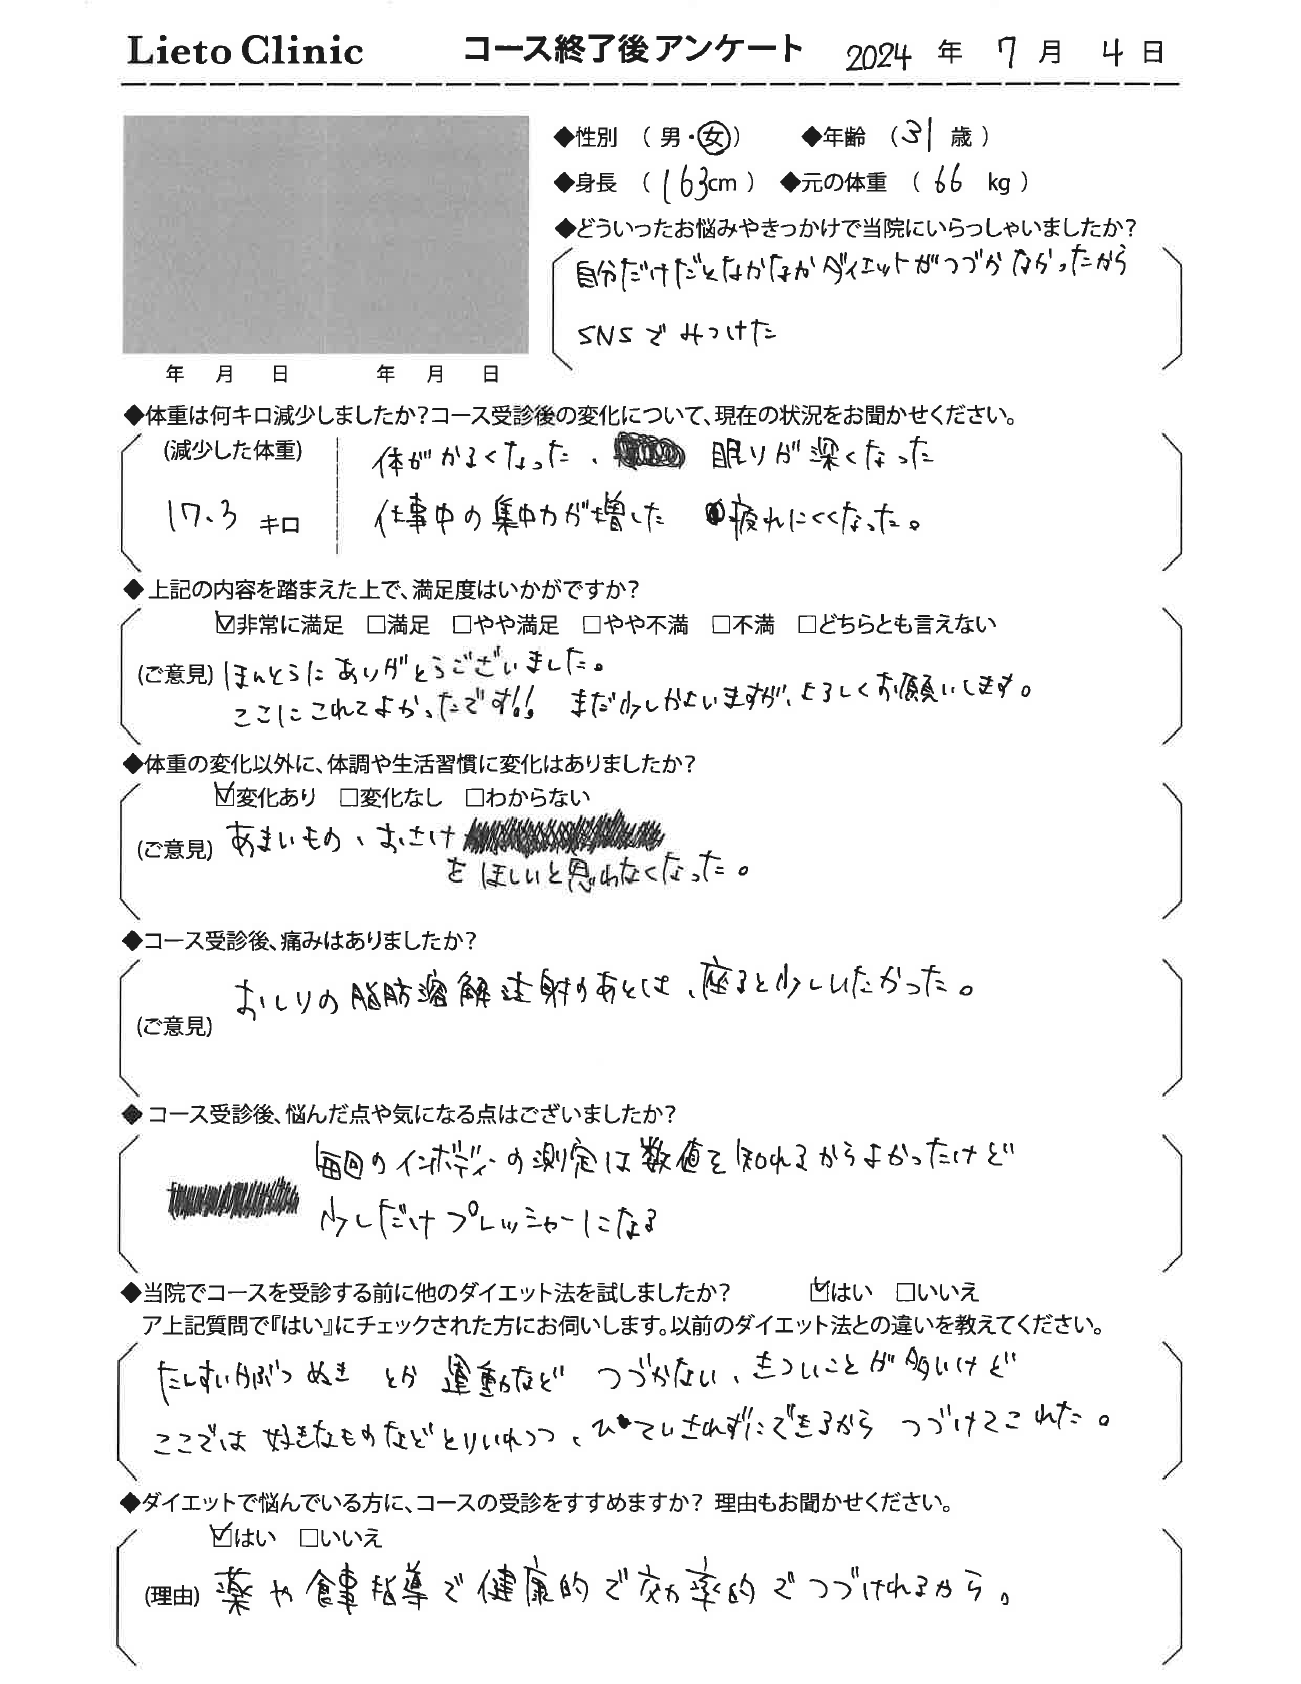 Lieto Clinic コース終了後アンケート 2024 年 7 月 4 日
◆性別 ( 男・女 ) ◆年齢 ( 31 歳 )
◆身長 ( 163cm ) ◆元の体重 ( 66 kg )
◆どういったお悩みやきっかけで当院にいらっしゃいましたか?
自分だけだとなかなかダイエットがつづかなかったから
SNSでみつけた
年 月 日 年 月 日
◆体重は何キロ減少しましたか?コース受診後の変化について、現在の状況をお聞かせください。
(減少した体重) 体がかるくなった、 眠りが深くなった
17.3 キロ 仕事中の集中力が増した 疲れにくくなった。
◆ 上記の内容を踏まえた上で、満足度はいかがですか?
☑非常に満足 □満足 □やや満足 □やや不満 □不満 □どちらとも言えない
(ご意見) ほんとうにありがとうございました。
ここにこれてよかったです!! まだ少しかよいますが、よろしくお願いします。
◆体重の変化以外に、体調や生活習慣に変化はありましたか?
☑変化あり □変化なし □わからない
(ご意見) あまいもの、おさけ
をほしいと思わなくなった。
◆コース受診後、痛みはありましたか?
おしりの脂肪溶解注射のあとは、座ると少しいたかった。
(ご意見)
◆ コース受診後、悩んだ点や気になる点はございましたか?
毎回のインボディーの測定は数値を知れるからよかったけど
少しだけプレッシャーになる
◆当院でコースを受診する前に他のダイエット法を試しましたか? ☑はい □いいえ
ア上記質問で『はい』にチェックされた方にお伺いします。以前のダイエット法との違いを教えてください。
たんすいかぶつぬき とか 運動など つづかない、きついことが多いけど
ここでは 好きなものなどとりいれつつ、ひていされずにできるから つづけてこれた。
◆ダイエットで悩んでいる方に、コースの受診をすすめますか? 理由もお聞かせください。
☑はい □いいえ
(理由) 薬や食事指導で健康的で効率的でつづけれるから。